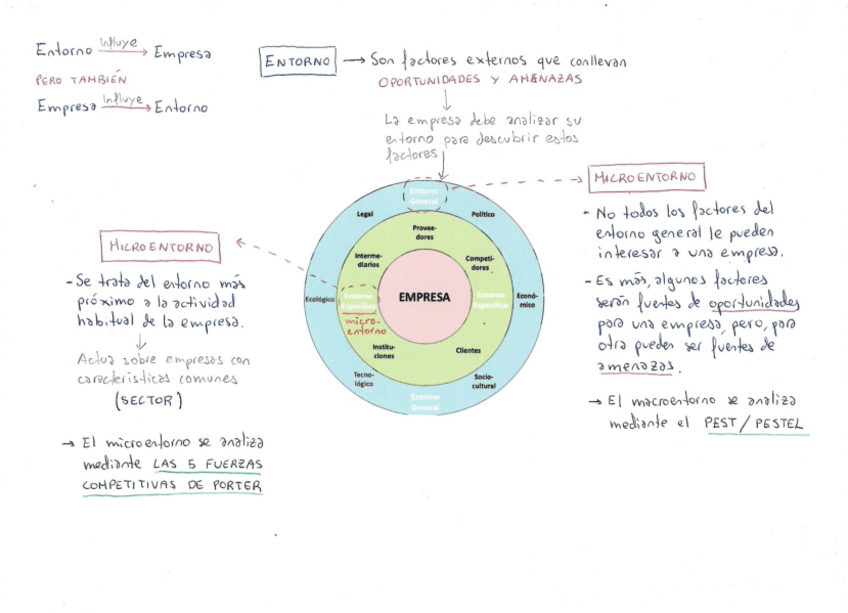 Entorno influye → Empresa
PERO TAMBIÉN
Empresa influye → Entorno
ENTORNO → Son factores externos que conllevan
OPORTUNIDADES Y AMENAZAS
La empresa debe analizar su
entorno para descubrir estos
factores
MICROENTORNO
- Se trata del entorno más
próximo a la actividad
habitual de la empresa.
Actua sobre empresas con
características comunes
(SECTOR)
→ El microentorno se analiza
mediante LAS 5 FUERZAS
COMPETITIVAS DE PORTER
Entorno
General
Legal
Político
Provee-
dores
Interme-
diarios
Competi-
dores
Ecológico
Entorno
Específico
micro-
entorno
EMPRESA
Entorno
Específico
Econó-
mico
Institu-
ciones
Clientes
Tecno-
lógico
Socio-
cultural
Entorno
General
MACROENTORNO
- No todos los factores del
entorno general le pueden
interesar a una empresa.
- Es más, algunos factores
serán fuentes de oportunidades
para una empresa, pero, para
otra pueden ser fuentes de
amenazas.
→ El macroentorno se analiza
mediante el PEST / PESTEL